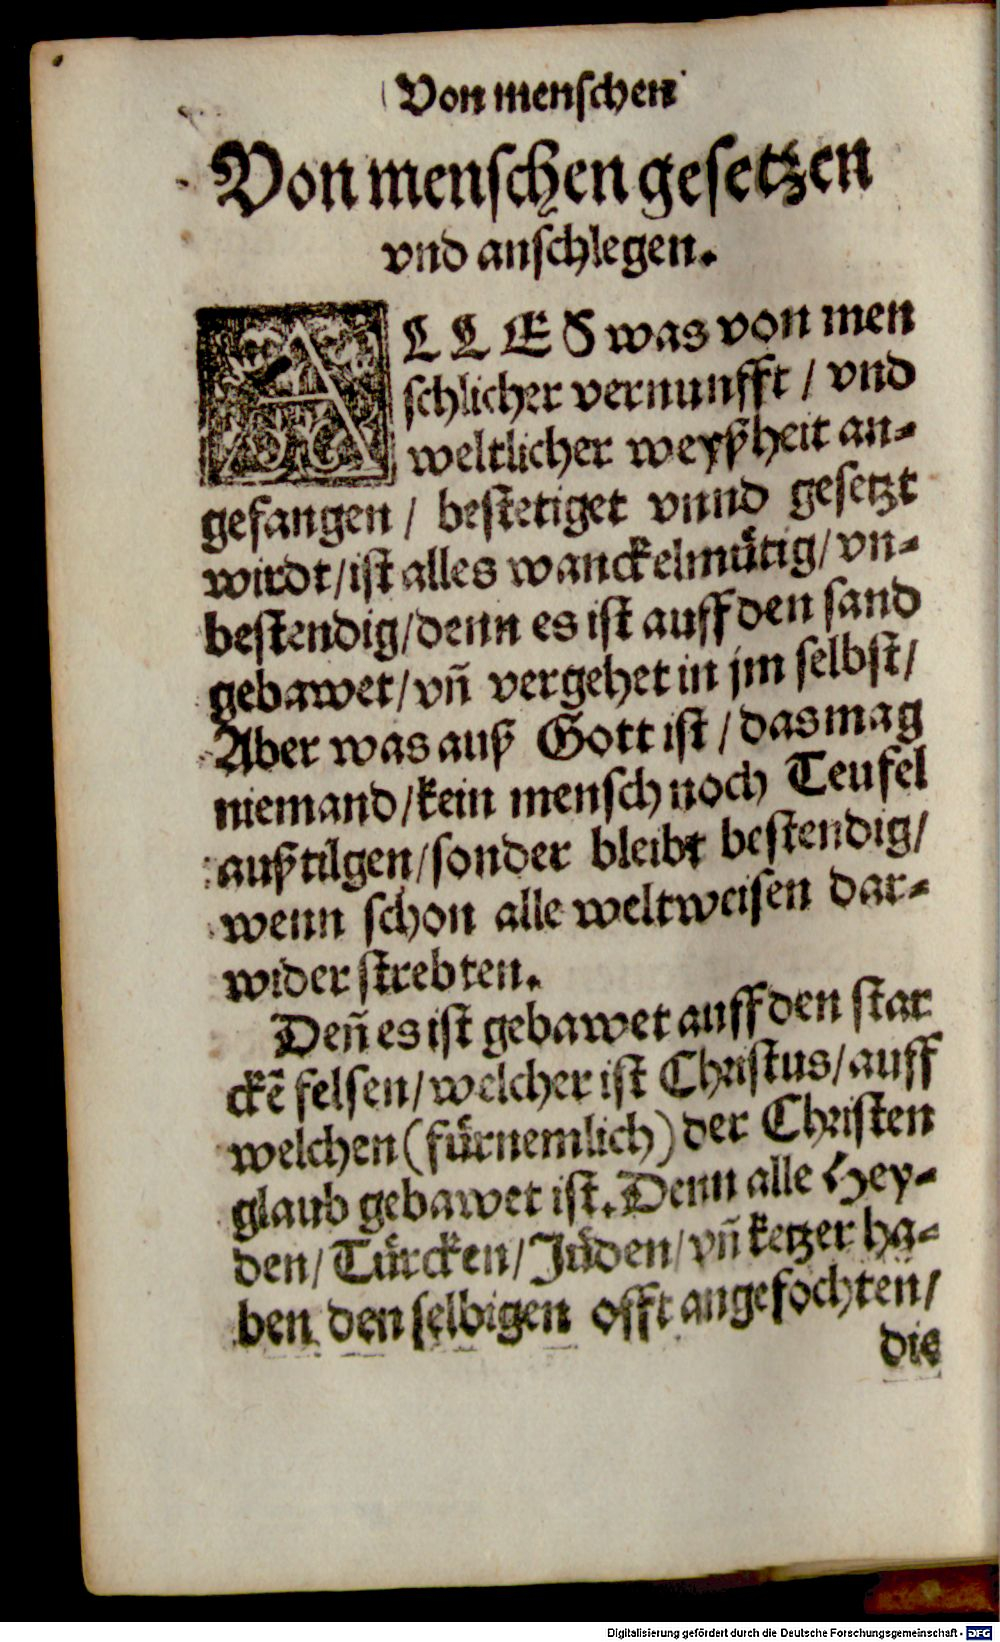 Von menschen
Von menschen gesetzen
vnd anschlegen.
ALLES was von men
schlicher vernunfft / vnd
weltlicher weyßheit an⸗
gefangen / bestetiget vnnd gesetzt
wirdt/ist alles wanckelmuͤtig/vn⸗
bestendig/denn es ist auff den sand
gebawet/vñ vergehet in jm selbst/
Aber was auß Gott ist / das mag
niemand/kein mensch noch Teufel
außtilgen/sonder bleibt bestendig/
wenn schon alle weltweisen dar⸗
wider strebten.
Deñ es ist gebawet auff den star
ckẽ felsen/welcher ist Christus/auff
welchen (fuͤrnemlich) der Christen
glaub gebawet ist. Denn alle Hey⸗
den/Tuͤrcken/Juͤden/vñ ketzer ha⸗
ben den selbigen offt angefochten/
die
Digitalisierung gefördert durch die Deutsche Forschungsgemeinschaft - DFG